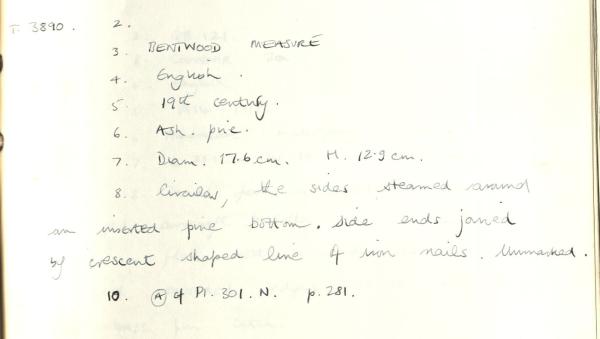 T. 3890. 2.
3. BENTWOOD MEASURE
4. English.
5. 19th century.
6. Ash. pine.
7. Diam. 17.6 cm. H. 12.9 cm.
8. Circular, the sides steamed around
an inserted pine bottom. Side ends joined
by crescent shaped line of iron nails. Unmarked.
10. (A) cf Pl. 301. N. p. 281.